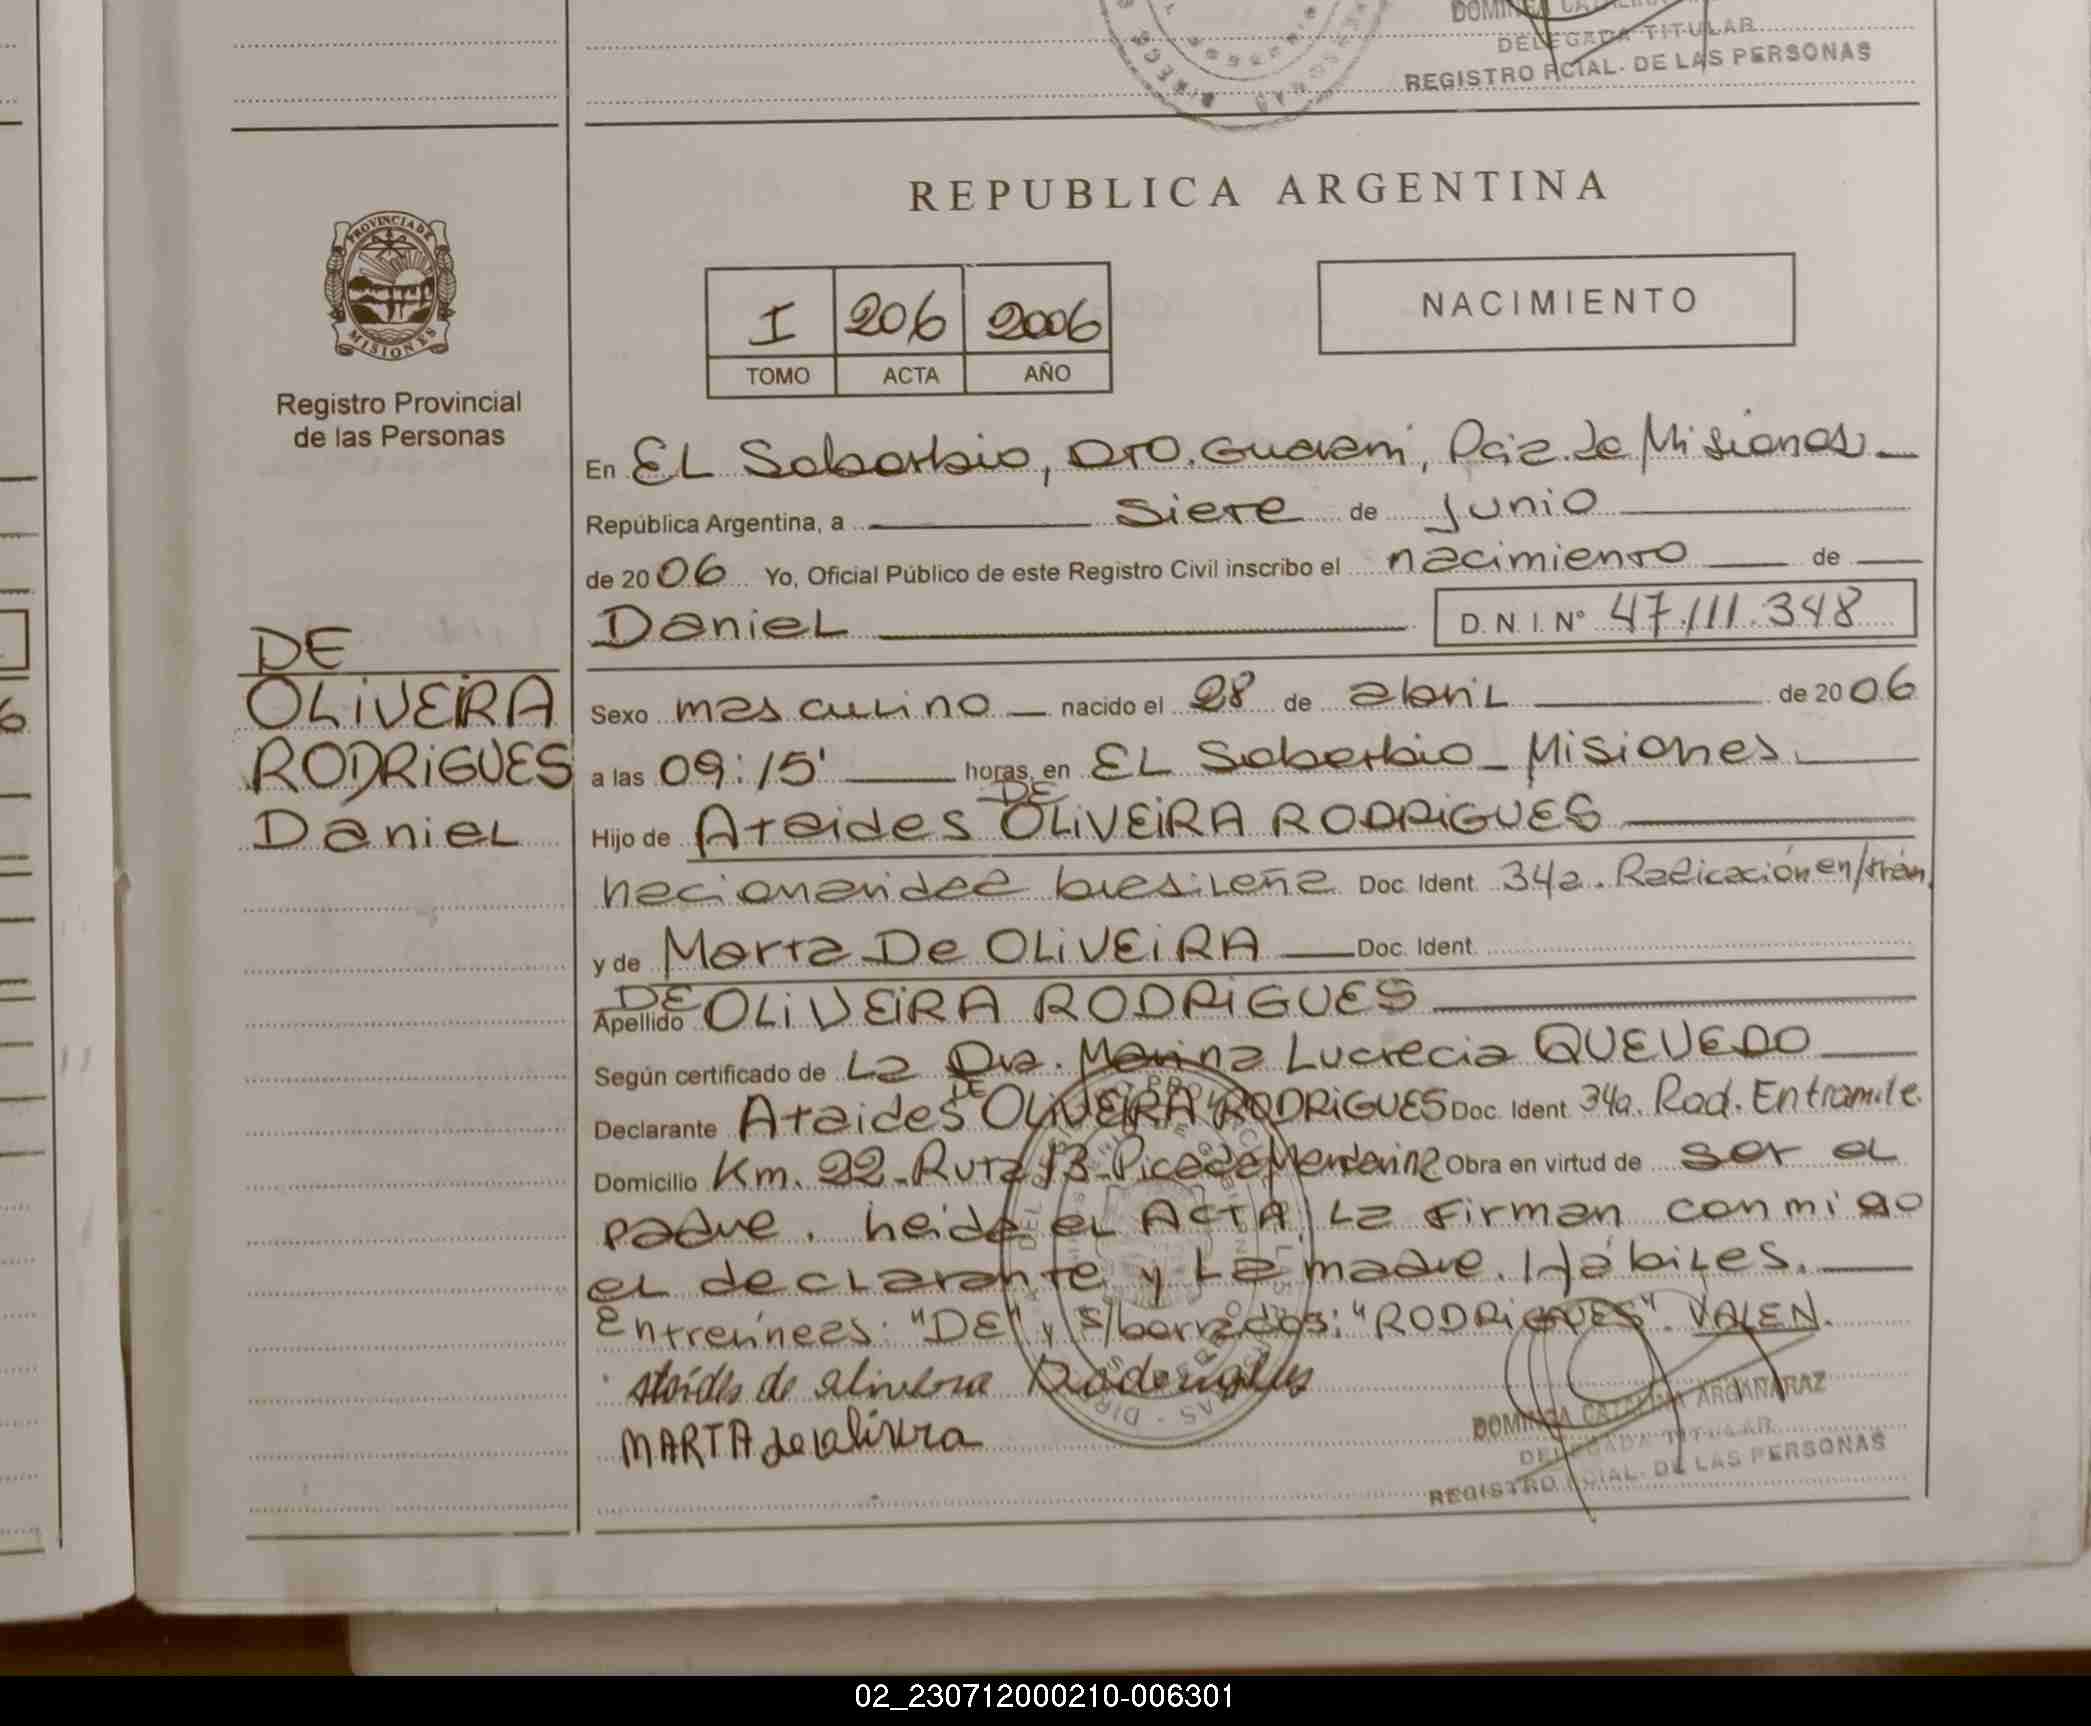 DELEGADA TITULAR
REGISTRO PCIAL. DE LAS PERSONAS
REPUBLICA ARGENTINA
PROVINCIA DE
MISIONES
Registro Provincial
de las Personas
I 206 2006
TOMO ACTA AÑO
NACIMIENTO
DE
OLIVEIRA
RODRIGUES
Daniel
En EL Soberbio, DTO. Guarani, Pcia. de Misiones
República Argentina, a siete de junio
de 2006 Yo, Oficial Público de este Registro Civil inscribo el nacimiento de
Daniel D.N.I. N° 47.111.348
Sexo masculino nacido el 28 de abril de 2006
a las 09:15' horas, en EL Soberbio - Misiones
Hijo de Ataides DE OLIVEIRA RODRIGUES
nacionalidad brasileña Doc. Ident. 34a. Radicación en/trám.
y de Marta De OLIVEIRA Doc. Ident.
Apellido DE OLIVEIRA RODRIGUES
Según certificado de La Dra. Marina Lucrecia QUEVEDO
Declarante Ataides DE OLIVEIRA RODRIGUES Doc. Ident. 34a. Rad. En tramite.
Domicilio Km. 22 - Ruta 13 - Picada Mandarina Obra en virtud de ser el
padre. Leida el ACTA, La firman conmigo
el declarante y La madre. Hábiles.
Entrelineas: "DE" y s/borrados: "RODRIGUES". VALEN.
Ataides de oliveira Rodrigues
MARTA de oliveira
DOMINGA CATALINA ARGAÑARAZ
DELEGADA TITULAR
REGISTRO PCIAL. DE LAS PERSONAS
02_230712000210-006301